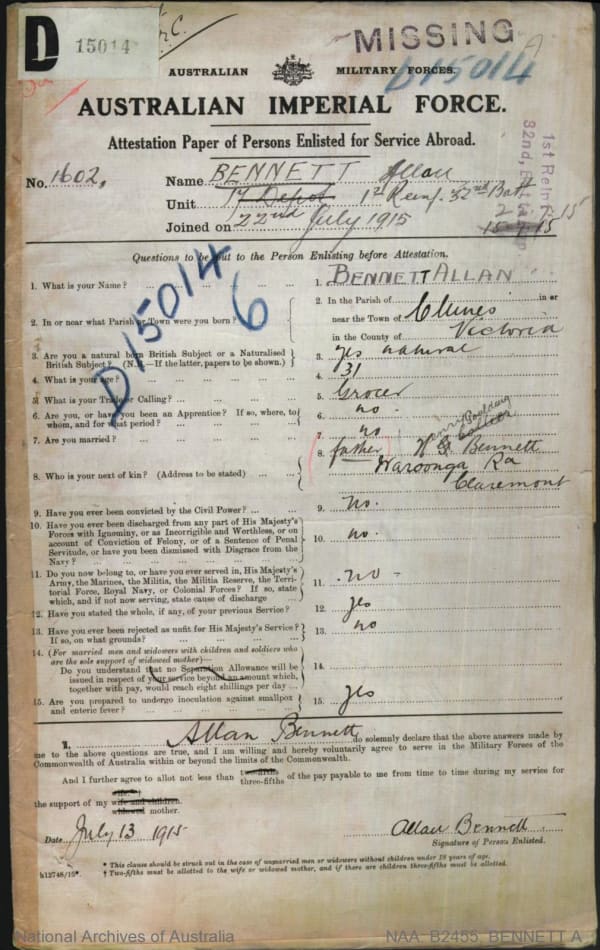 D
15014
MISSING
D15014
AUSTRALIAN MILITARY FORCES.
AUSTRALIAN IMPERIAL FORCE.
Attestation Paper of Persons Enlisted for Service Abroad.
No. 1602. Name BENNETT Allan
Unit 17 Depot 1st Reinf. 32nd Batt
Joined on 22nd July 1915
1st Rein
32nd. Batt
15 7 15
Questions to be put to the Person Enlisting before Attestation.
D15014
6
1. What is your Name? ... 1. BENNETT ALLAN
2. In or near what Parish or Town were you born? ... 2. In the Parish of ... in or
near the Town of Clunes
in the County of Victoria
3. Are you a natural born British Subject or a Naturalised
British Subject? (N.B.—If the latter, papers to be shown.) 3. yes natural
4. What is your age? ... 4. 31
5. What is your Trade or Calling? ... 5. Grocer
6. Are you, or have you been an Apprentice? If so, where, to
whom, and for what period? ... 6. no.
7. Are you married? ... 7. no
8. Who is your next of kin? (Address to be stated) ... 8. father Bennett
Claremont
9. Have you ever been convicted by the Civil Power? ... 9. no.
10. Have you ever been discharged from any part of His Majesty's
Forces with Ignominy, or as Incorrigible and Worthless, or on
account of Conviction of Felony, or of a Sentence of Penal
Servitude, or have you been Dismissed with Disgrace from the
Navy? ... 10. no.
11. Do you now belong to, or have you ever served in, His Majesty's
Army, the Marines, the Militia, the Militia Reserve, the Terri-
torial Force, Royal Navy, or Colonial Forces? If so, state
which, and if not now serving, state cause of discharge 11. no -
12. Have you stated the whole, if any, of your previous Service? 12. yes
13. Have you ever been rejected as unfit for His Majesty's Service?
If so, on what grounds? ... 13. no
14. (For married men and widowers with children and soldiers who
are the sole support of widowed mother)—
Do you understand that no Separation Allowance will be
issued in respect of your service beyond an amount which,
together with pay, would reach eight shillings per day ... 14.
15. Are you prepared to undergo inoculation against smallpox
and enteric fever? ... 15. yes
I, Allan Bennett do solemnly declare that the above answers made by
me to the above questions are true, and I am willing and hereby voluntarily agree to serve in the Military Forces of the
Commonwealth of Australia within or beyond the limits of the Commonwealth.
And I further agree to allot not less than two-fifths three-fifths of the pay payable to me from time to time during my service for
the support of my wife wife and children. widowed mother.
Date July 13 1915 Allan Bennett
Signature of Person Enlisted.
* This clause should be struck out in the case of unmarried men or widowers without children under 18 years of age.
† Two-fifths must be allotted to the wife or widowed mother, and if there are children three-fifths must be allotted.
National Archives of Australia NAA: B2455, BENNETT A